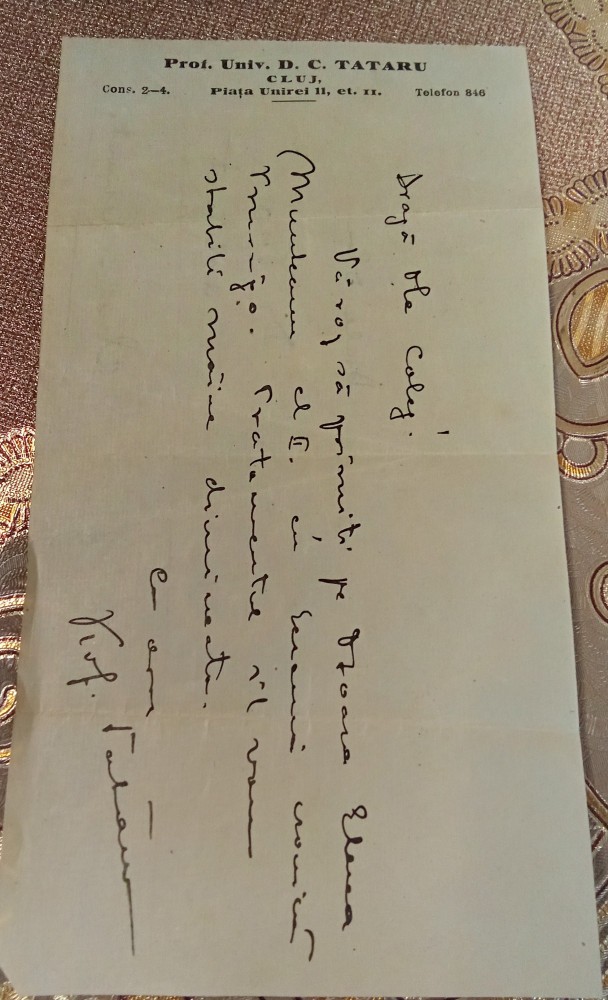 Prof. Univ. D. C. TATARU
CLUJ,
Cons. 2—4. Piața Unirei 11, et. II. Telefon 846
Dragă Dle Coleg!
Vă rog să primiți pe Dșoara Elena
Munteanu cl II. cu Eczemă cronică
Tratamentul îl vom
stabili mâine dimineața.
Prof. Tătaru